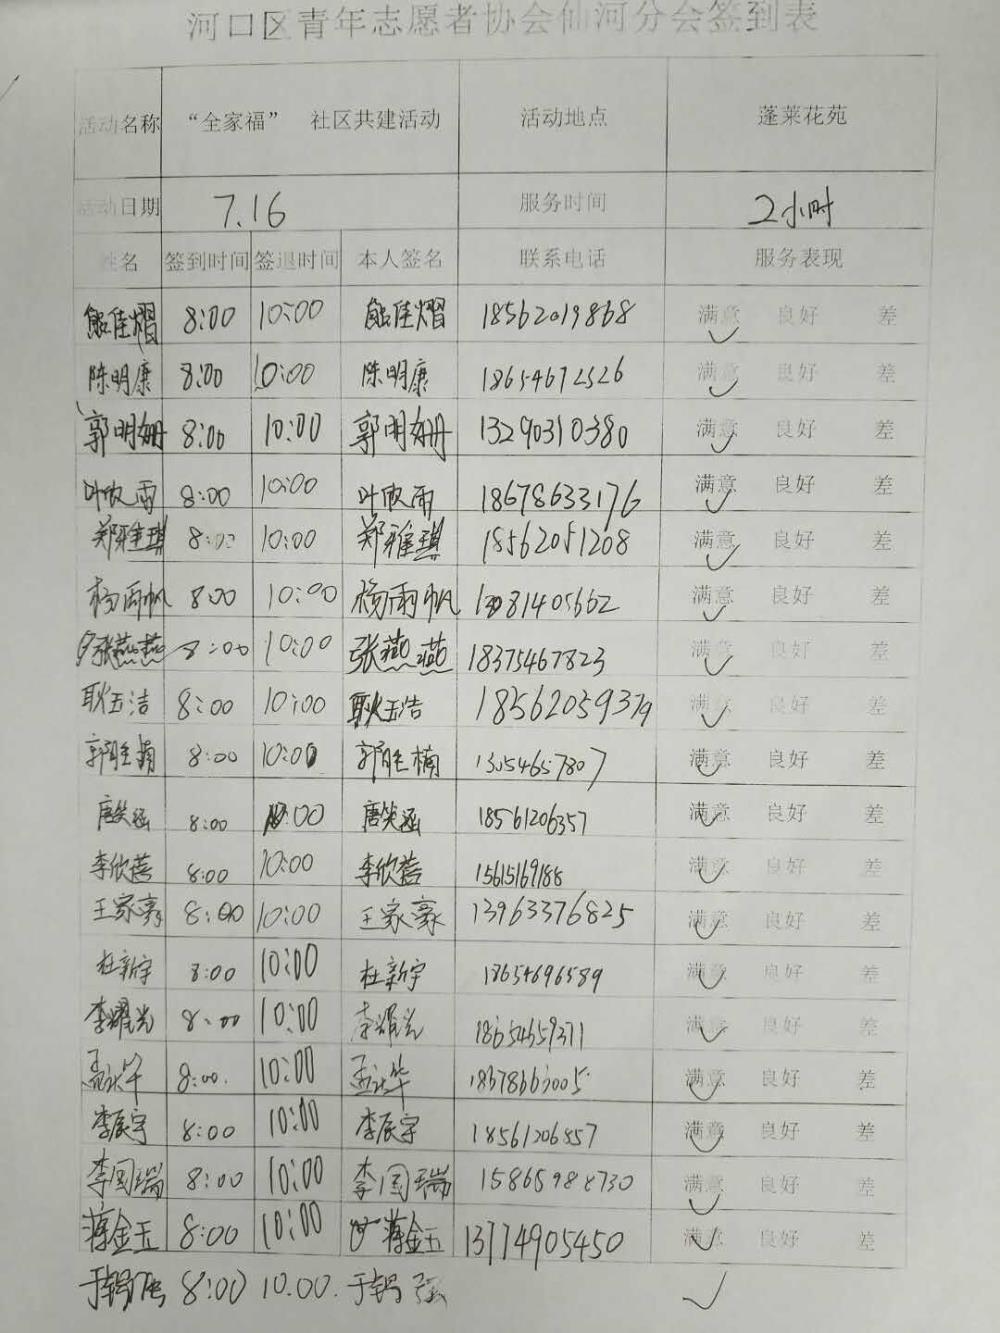 河口区青年志愿者协会仙河分会签到表
活动名称 “全家福” 社区共建活动 活动地点 蓬莱花苑
活动日期 7.16 服务时间 2小时
姓名 签到时间 签退时间 本人签名 联系电话 服务表现
熊佳熠 8:00 10:00 熊佳熠 18562019868 满意 良好 差
陈明康 8:00 10:00 陈明康 18654672526 满意 良好 差
郭明姗 8:00 10:00 郭明姗 13290310380 满意 良好 差
8:00 10:00 18678633176 满意 良好 差
郑雅琪 8:00 10:00 郑雅琪 18562051208 满意 良好 差
杨雨帆 8:00 10:00 杨雨帆 满意 良好 差
张燕燕 8:00 10:00 张燕燕 18375467823 满意 良好 差
耿玉洁 8:00 10:00 耿玉洁 18562059379 满意 良好 差
郭胜楠 8:00 10:00 郭胜楠 13054657807 满意 良好 差
唐笑涵 8:00 10:00 唐笑涵 18561206357 满意 良好 差
李欣蓓 8:00 10:00 李欣蓓 15615169188 满意 良好 差
王家豪 8:00 10:00 王家豪 13963376825 满意 良好 差
杜新宇 8:00 10:00 杜新宇 18654696589 满意 良好 差
李耀光 8:00 10:00 李耀光 18654659371 满意 良好 差
8:00. 10:00 满意 良好 差
李辰宇 8:00 10:00 李辰宇 18561206857 满意 良好 差
李国瑞 8:00 10:00 李国瑞 满意 良好 差
蒋金玉 8:00 10:00 蒋金玉 13774905450 满意 良好 差
8:00 10.00.